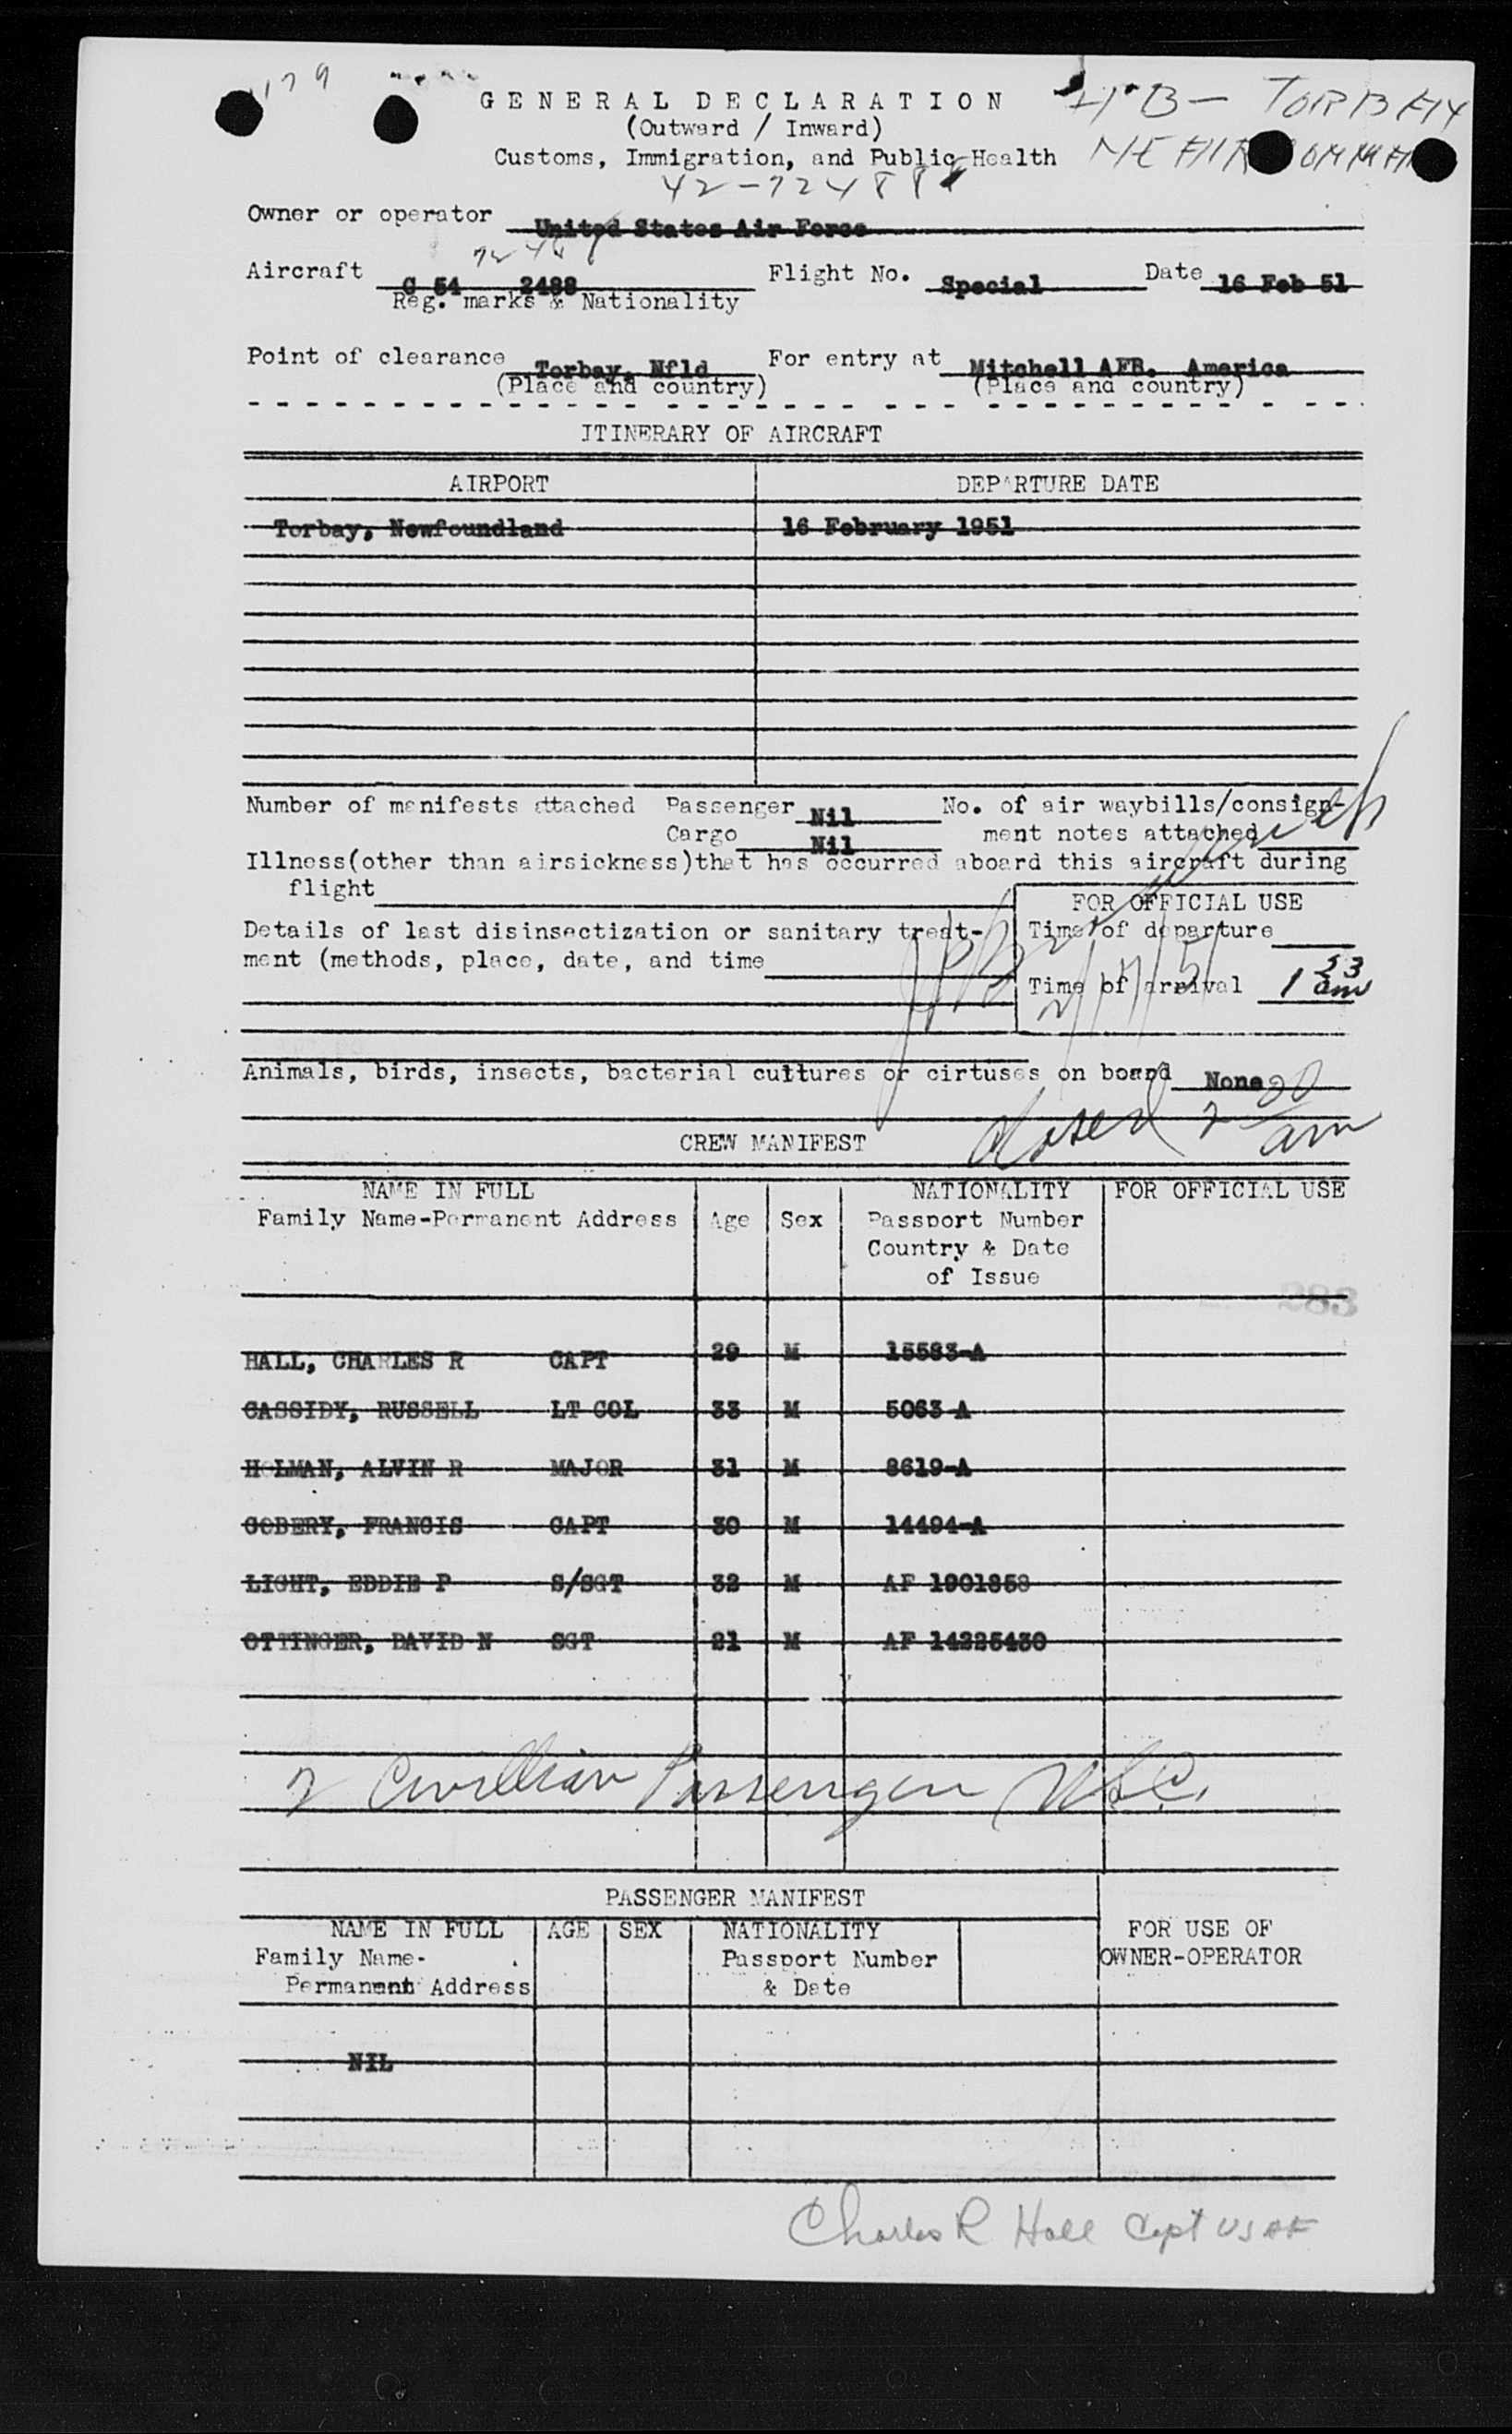 179
GENERAL DECLARATION
(Outward / Inward)
Customs, Immigration, and Public Health
TORBAY
42-72488
Owner or operator United States Air Force
72488
Aircraft C 54 2488 Flight No. Special Date 16 Feb 51
Reg. marks & Nationality
Point of clearance Torbay, Nfld For entry at Mitchell AFB. America
(Place and country) (Place and country)
ITINERARY OF AIRCRAFT
AIRPORT DEPARTURE DATE
Torbay, Newfoundland 16 February 1951
Number of manifests attached Passenger Nil No. of air waybills/consign-
Cargo Nil ment notes attached
Illness(other than airsickness)that has occurred aboard this aircraft during
flight
FOR OFFICIAL USE
Details of last disinsectization or sanitary treat- Time of departure
ment (methods, place, date, and time
Time of arrival 1 53 am
2/17/51
Animals, birds, insects, bacterial cultures or cirtuses on board None
Closed 2 20 am
CREW MANIFEST
NAME IN FULL NATIONALITY FOR OFFICIAL USE
Family Name-Permanent Address Age Sex Passport Number
Country & Date
of Issue
283
HALL, CHARLES R CAPT 29 M 15583-A
CASSIDY, RUSSELL LT COL 33 M 5063-A
HOLMAN, ALVIN R MAJOR 31 M 8619-A
GOBERY, FRANCIS CAPT 30 M 14494-A
LIGHT, EDDIE P S/SGT 32 M AF 1901858
OTTINGER, DAVID N SGT 21 M AF 14225430
2 Civillian Passengers USC.
PASSENGER MANIFEST
NAME IN FULL AGE SEX NATIONALITY FOR USE OF
Family Name- Passport Number OWNER-OPERATOR
Permanent Address & Date
NIL
Charles R Hall Capt USAF